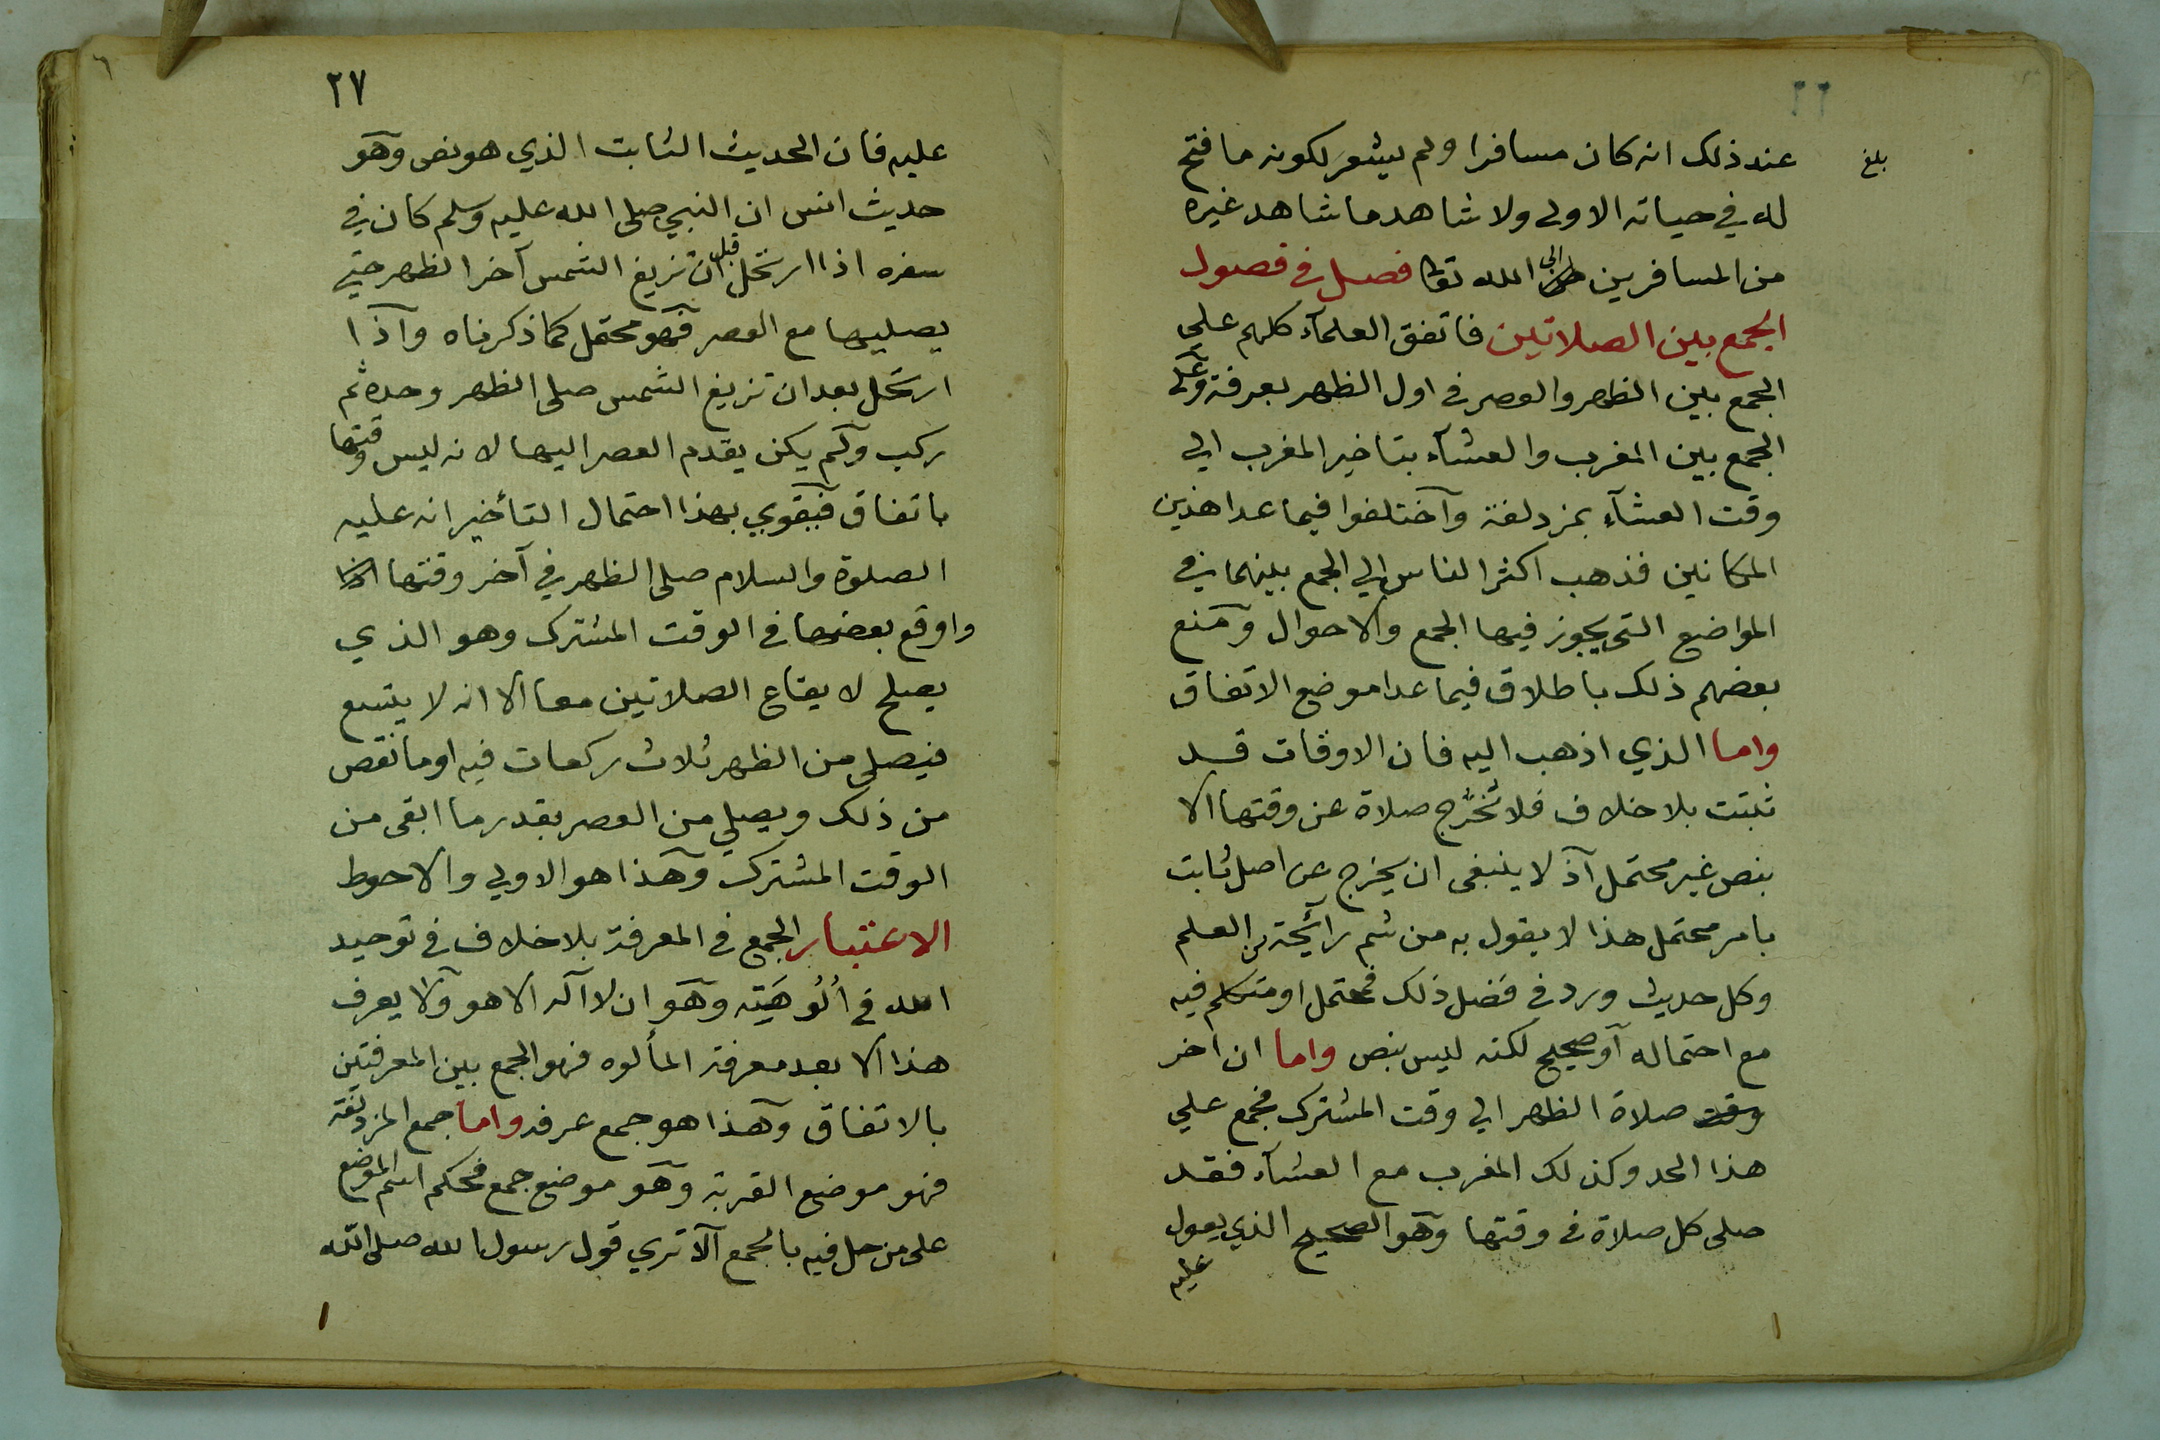 ٢٦
بلغ
عند ذلك انه كان مسافرا ولم يشعر لكونه ما فتح
له في حياته الاولى ولا شاهد ما شاهد غيره
من المسافرين الى الله تعا فصل في فصول
الجمع بين الصلاتين فاتفق العلمآء كلهم علي
الجمع بين الظهر والعصر في اول الظهر بعرفة وعلى
الجمع بين المغرب والعشآء بتاخير المغرب الي
وقت العشآء بمزدلفة وآختلفوا فيما عدا هذين
المكانين فذهب اكثر الناس الي الجمع بينهما في
المواضع التي يجوز فيها الجمع والاحوال ومنع
بعضهم ذلك باطلاق فيما عدا موضع الاتفاق
واما الذي اذهب اليه فان الاوقات قد
ثبتت بلا خلاف فلا تخرج صلاة عن وقتها الا
بنص غير محتمل آذ لا ينبغى ان يخرج عن اصل ثابت
بامر محتمل هذا لا يقول به من شم رآئحة من العلم
وكل حديث ورد في فضل ذلك فمحتمل او متكلم فيه
مع احتماله آو صحيح لكنه ليس بنص واما ان اخر
وقت صلاة الظهر الي وقت المشترك فجمع علي
هذا الحد وكذلك المغرب مع العشآء فقد
صلى كل صلاة في وقتها وهو الصحيح الذي يعول
عليه
٢٧
عليه فان الحديث الثابت الذي هو نص وهو
حديث انس ان النبي صلى الله عليه وسلم كان في
سفره اذا ارتحل قبل ان تزيغ الشمس آخر الظهر حتي
يصليها مع العصر فهو محتمل كما ذكرناه وآذا
ارتحل بعد ان تزيغ الشمس صلى الظهر وحده ثم
ركب ولم يكن يقدم العصر اليها لانه ليس وقتها
باتفاق فيقوي بهذا احتمال التأخير انه عليه
الصلوة والسلام صلى الظهر في آخر وقتها
واوقع بعضها في الوقت المشترك وهو الذي
يصلح لايقاع الصلاتين معا الا انه لا يتسع
فيصلى من الظهر ثلاث ركعات فيه او ما نقص
من ذلك ويصلي من العصر بقدر ما ابقى من
الوقت المشترك وهذا هو الاولي والاحوط
الاعتبار الجمع في المعرفة بلا خلاف في توحيد
الله في ألُوهَيّته وهو ان لا آله الا هو ولا يعرف
هذا الا بعد معرفة المألوه فهو الجمع بين المعرفتين
بالاتفاق وهذا هو جمع عرفه واما جمع المزدلفة
فهو موضع القربة وهو موضع جمع فحكم اسم الموضع
على من حل فيه بالجمع آلا تري قول رسول الله صلى الله